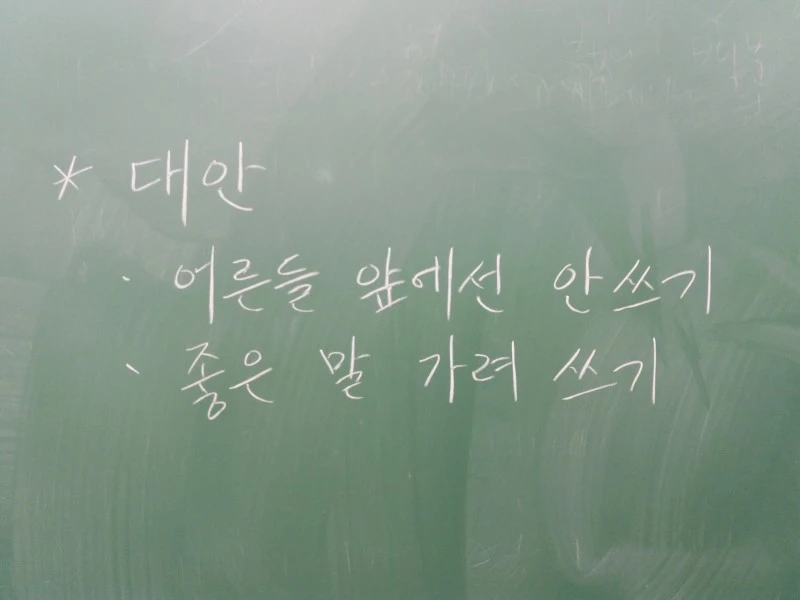 * 대안
· 어른들 앞에선 안쓰기
· 좋은 말 가려 쓰기